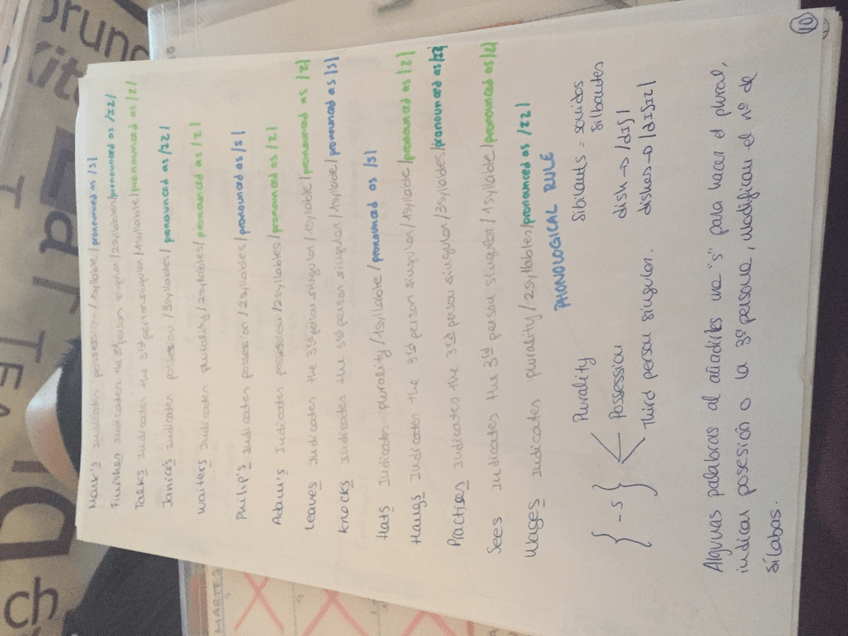 Mark's Indicates possession / 1syllable / pronounced as /s/
Finishes Indicates the 3rd person singular / 3syllables / pronounced as /ɪz/
Talks Indicates the 3rd person singular / 1syllable / pronounced as /z/
Janice's Indicates possession / 3syllables / pronounced as /ɪz/
Waiters Indicates plurality / 2syllables / pronounced as /z/
Philip's Indicates possession / 2syllables / pronounced as /s/
Adam's Indicates possession / 2syllables / pronounced as /z/
Leaves Indicates the 3rd person singular / 1syllable / pronounced as /z/
Knocks Indicates the 3rd person singular / 1syllable / pronounced as /s/
Hats Indicates plurality / 1syllable / pronounced as /s/
Hangs Indicates the 3rd person singular / 1syllable / pronounced as /z/
Practises Indicates the 3rd person singular / 3syllables / pronounced as /ɪz/
Sees Indicates the 3rd person singular / 1syllable / pronounced as /z/
Wages Indicates plurality / 2syllables / pronounced as /ɪz/
PHONOLOGICAL RULE
Plurality
{-s} Possession
Third person singular.
Siblants = sonidos
silbantes
dish → /dɪʃ/
dishes → /dɪʃɪz/
Algunas palabras al añadirles una "s" para hacer el plural,
indicar posesión o la 3ª persona, modifican el nº de
sílabas.
10
MARTES
ch